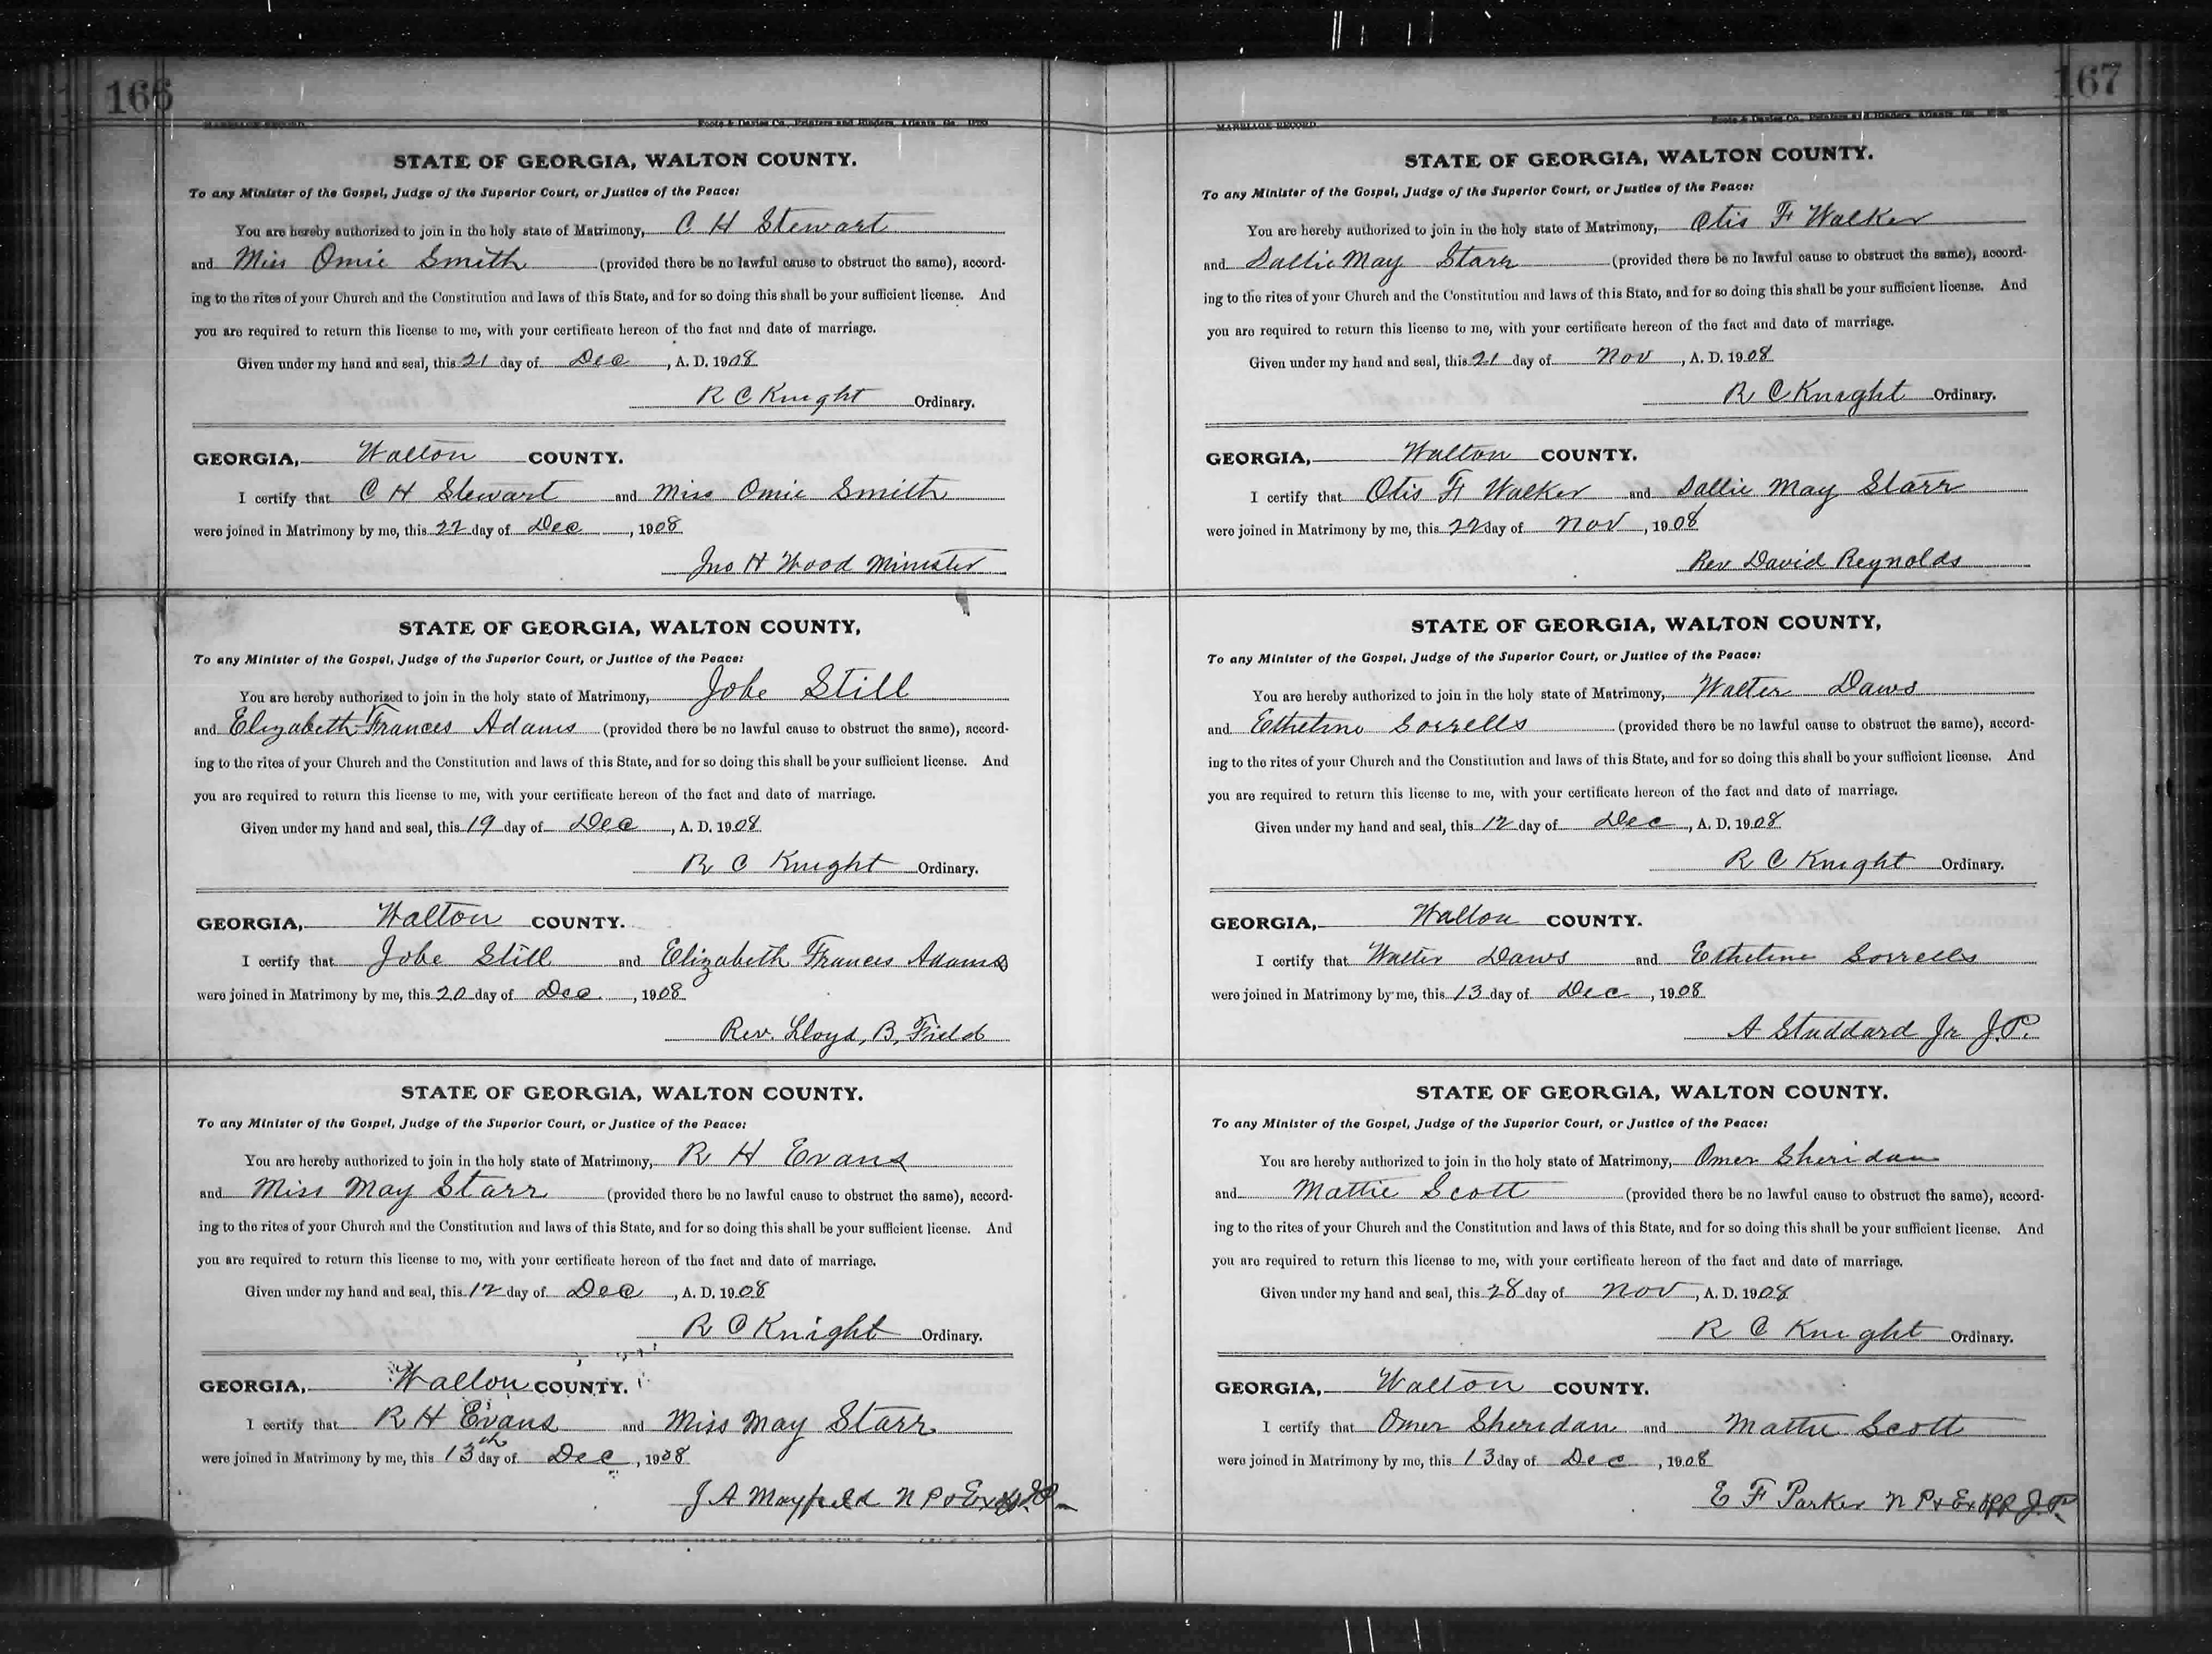 166
MARRIAGE RECORD Foote & Davies Co., Printers and Binders, Atlanta, Ga.
STATE OF GEORGIA, WALTON COUNTY.
To any Minister of the Gospel, Judge of the Superior Court, or Justice of the Peace:
You are hereby authorized to join in the holy state of Matrimony, C H Stewart
and Miss Omie Smith (provided there be no lawful cause to obstruct the same), accord-
ing to the rites of your Church and the Constitution and laws of this State, and for so doing this shall be your sufficient license. And
you are required to return this license to me, with your certificate hereon of the fact and date of marriage.
Given under my hand and seal, this 21 day of Dec, A. D. 1908
R C Knight Ordinary.
GEORGIA, Walton COUNTY.
I certify that C H Stewart and Miss Omie Smith
were joined in Matrimony by me, this 22 day of Dec, 1908
Jno H Wood Minister
STATE OF GEORGIA, WALTON COUNTY,
To any Minister of the Gospel, Judge of the Superior Court, or Justice of the Peace:
You are hereby authorized to join in the holy state of Matrimony, Jobe Still
and Elizabeth Frances Adams (provided there be no lawful cause to obstruct the same), accord-
ing to the rites of your Church and the Constitution and laws of this State, and for so doing this shall be your sufficient license. And
you are required to return this license to me, with your certificate hereon of the fact and date of marriage.
Given under my hand and seal, this 19 day of Dec, A. D. 1908
R C Knight Ordinary.
GEORGIA, Walton COUNTY.
I certify that Jobe Still and Elizabeth Frances Adams
were joined in Matrimony by me, this 20 day of Dec, 1908
Rev. Lloyd, B, Field
STATE OF GEORGIA, WALTON COUNTY.
To any Minister of the Gospel, Judge of the Superior Court, or Justice of the Peace:
You are hereby authorized to join in the holy state of Matrimony, R H Evans
and Miss May Starr (provided there be no lawful cause to obstruct the same), accord-
ing to the rites of your Church and the Constitution and laws of this State, and for so doing this shall be your sufficient license. And
you are required to return this license to me, with your certificate hereon of the fact and date of marriage.
Given under my hand and seal, this 12 day of Dec, A. D. 1908
R C Knight Ordinary.
GEORGIA, Walton COUNTY.
I certify that R H Evans and Miss May Starr
were joined in Matrimony by me, this 13th day of Dec, 1908
J A Mayfield N P & Ex
167
MARRIAGE RECORD Foote & Davies Co., Printers and Binders, Atlanta, Ga.
STATE OF GEORGIA, WALTON COUNTY.
To any Minister of the Gospel, Judge of the Superior Court, or Justice of the Peace:
You are hereby authorized to join in the holy state of Matrimony, Otis F Walker
and Sallie May Starr (provided there be no lawful cause to obstruct the same), accord-
ing to the rites of your Church and the Constitution and laws of this State, and for so doing this shall be your sufficient license. And
you are required to return this license to me, with your certificate hereon of the fact and date of marriage.
Given under my hand and seal, this 21 day of Nov, A. D. 1908
R C Knight Ordinary.
GEORGIA, Walton COUNTY.
I certify that Otis F Walker and Sallie May Starr
were joined in Matrimony by me, this 22 day of Nov, 1908
Rev David Reynolds
STATE OF GEORGIA, WALTON COUNTY,
To any Minister of the Gospel, Judge of the Superior Court, or Justice of the Peace:
You are hereby authorized to join in the holy state of Matrimony, Walter Daws
and Etheline Sorrells (provided there be no lawful cause to obstruct the same), accord-
ing to the rites of your Church and the Constitution and laws of this State, and for so doing this shall be your sufficient license. And
you are required to return this license to me, with your certificate hereon of the fact and date of marriage.
Given under my hand and seal, this 12 day of Dec, A. D. 1908
R C Knight Ordinary.
GEORGIA, Walton COUNTY.
I certify that Walter Daws and Etheline Sorrells
were joined in Matrimony by me, this 13 day of Dec, 1908
A Studdard Jr J.P.
STATE OF GEORGIA, WALTON COUNTY.
To any Minister of the Gospel, Judge of the Superior Court, or Justice of the Peace:
You are hereby authorized to join in the holy state of Matrimony, Omer Sheridan
and Mattie Scott (provided there be no lawful cause to obstruct the same), accord-
ing to the rites of your Church and the Constitution and laws of this State, and for so doing this shall be your sufficient license. And
you are required to return this license to me, with your certificate hereon of the fact and date of marriage.
Given under my hand and seal, this 28 day of Nov, A. D. 1908
R C Knight Ordinary.
GEORGIA, Walton COUNTY.
I certify that Omer Sheridan and Mattie Scott
were joined in Matrimony by me, this 13 day of Dec, 1908
E F Parker N P & Ex Off J.P.